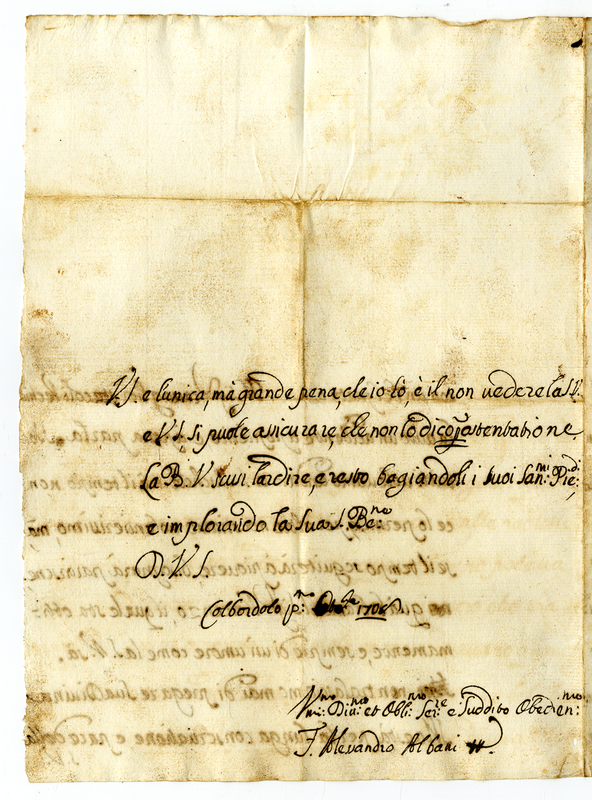 V.S. e l'unica, mà grande pena, che io hò, è il non vedere la S.V.
e V.S. si puole assicurare, che non lo dico p ostentatione.
La B. V. scusi l'ardire, e resto bagiandoli i suoi San.mi Pie.di,
e implorando la sua S. Be.ne
D. V. S.
Colbordolo p.mo 8bre 1708.
V.mo Div.mo et Obli.mo Ser.re e Suddito Obedien.mo
F. Alesandro Albani